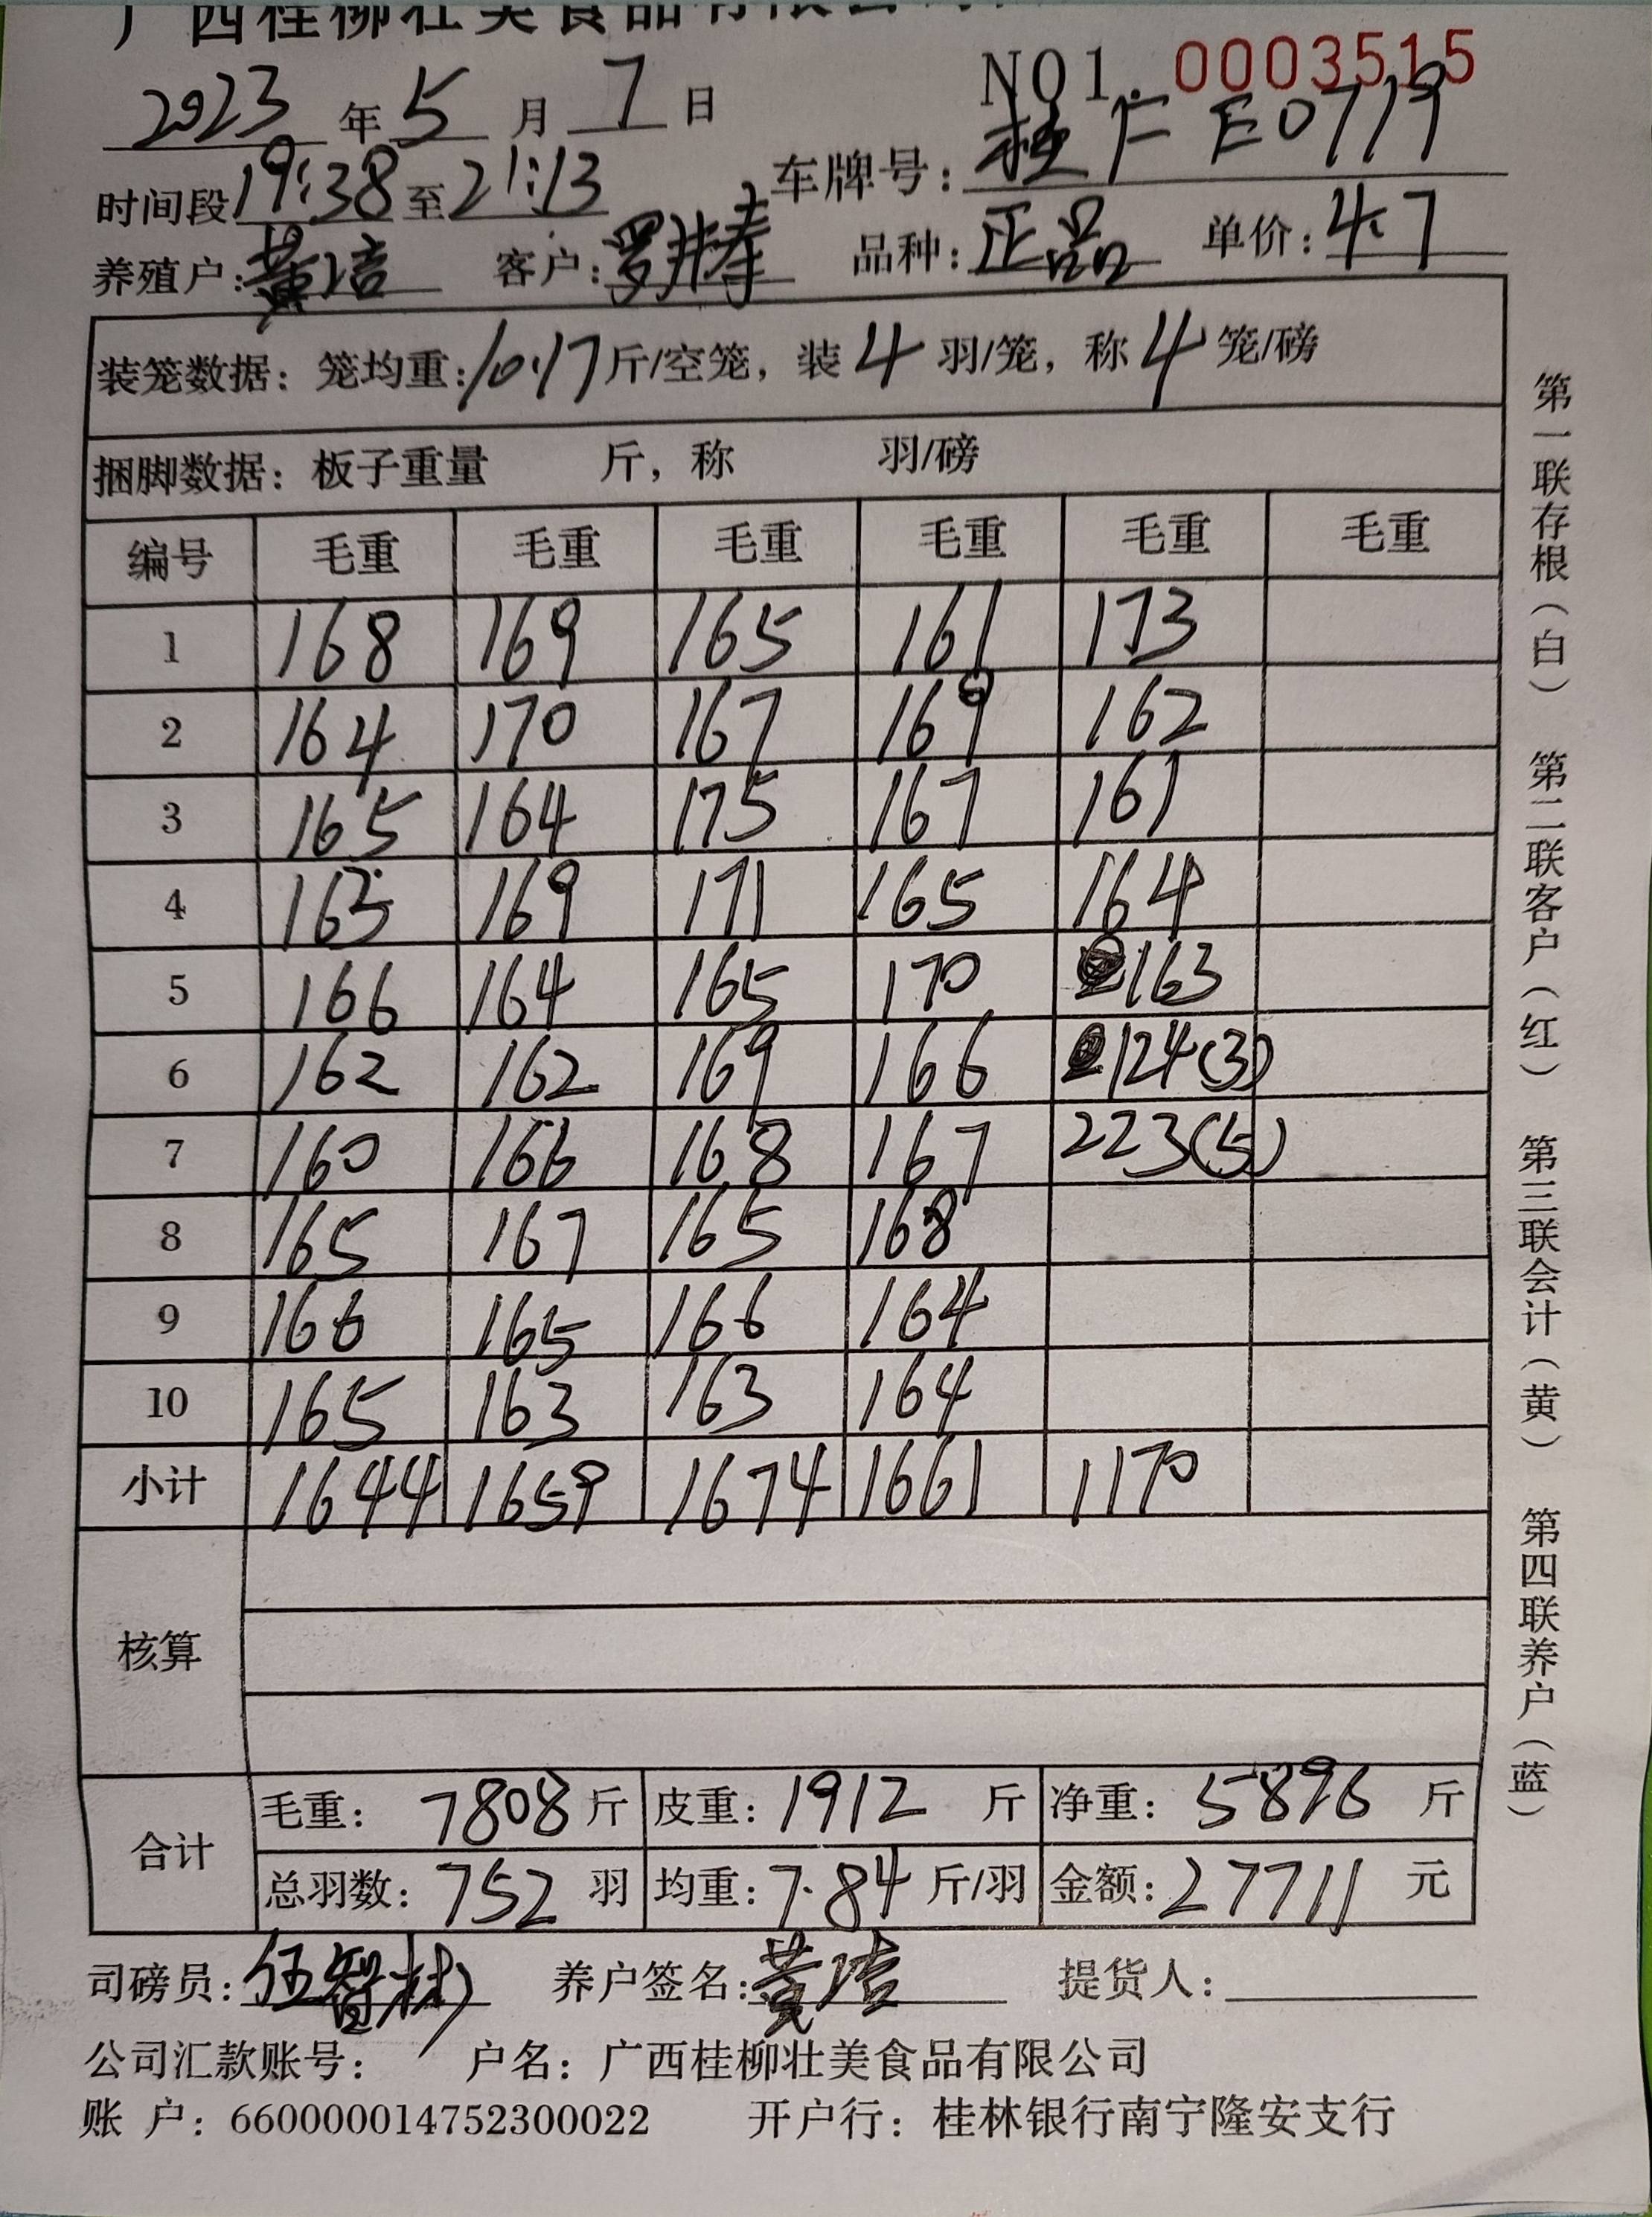 广西桂柳壮美食品有限公司
NO1. 0003515
2023 年 5 月 7 日
时间段 19:38 至 21:13 车牌号: 桂 E0719
养殖户: 黄洁 客户: 罗 品种: 正品 单价: 4.7
装笼数据: 笼均重: 10.17 斤/空笼, 装 4 羽/笼, 称 4 笼/磅
捆脚数据: 板子重量 斤, 称 羽/磅
编号 毛重 毛重 毛重 毛重 毛重 毛重
1 168 169 165 161 173
2 164 170 167 169 162
3 165 164 175 167 161
4 163 169 171 165 164
5 166 164 165 170 163
6 162 162 169 166 124(3)
7 160 166 168 167 223(5)
8 165 167 165 168
9 166 165 166 164
10 165 163 163 164
小计 1644 1659 1674 1661 1170
核算
合计
毛重: 7808 斤 皮重: 1912 斤 净重: 5896 斤
总羽数: 752 羽 均重: 7.84 斤/羽 金额: 27711 元
司磅员: 伍智彬 养户签名: 黄洁 提货人:
公司汇款账号: 户名: 广西桂柳壮美食品有限公司
账 户: 660000014752300022 开户行: 桂林银行南宁隆安支行
第一联存根(白) 第二联客户(红) 第三联会计(黄) 第四联养户(蓝)